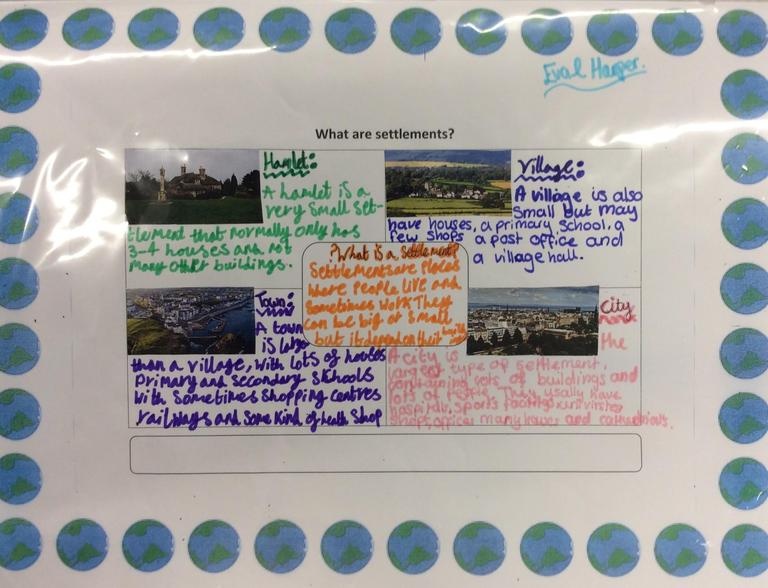 Harper.
What are settlements?
Hamlet:
A hamlet is a
very small set-
tlement that normally only has
3-4 houses and not
many other buildings.
Village:
A village is also
small but may
have houses, a primary school, a
few shops a post office and
a village hall.
?What is a settlement?
Settlements are places
where people live and
sometimes work They
can be big or small
but it depend on their
Town:
A town
is large
than a village, with lots of houses
primary and secondary schools
with sometimes shopping centres
railways and some kind of heath shop
City
A city is the
largest type of settlement,
containing lots of buildings and
lots of people. They usally have
hospitals, sports
shops, offices many houses and cathedrals.